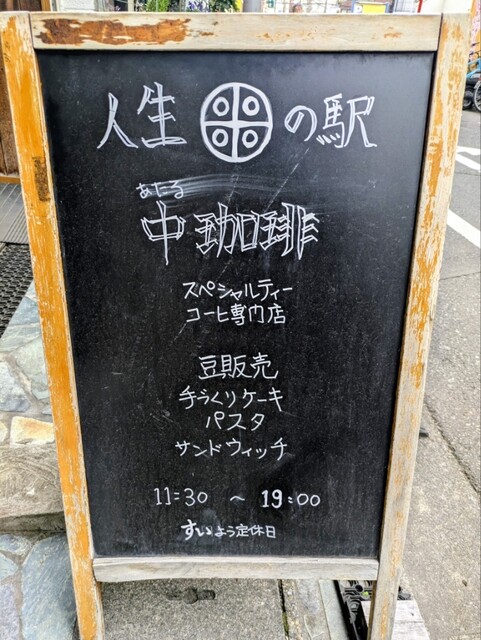 人生の駅
あたる
中珈琲
スペシャルティー
コーヒ専門店
豆販売
手づくりケーキ
パスタ
サンドウィッチ
11:30 ～ 19:00
すいよう定休日